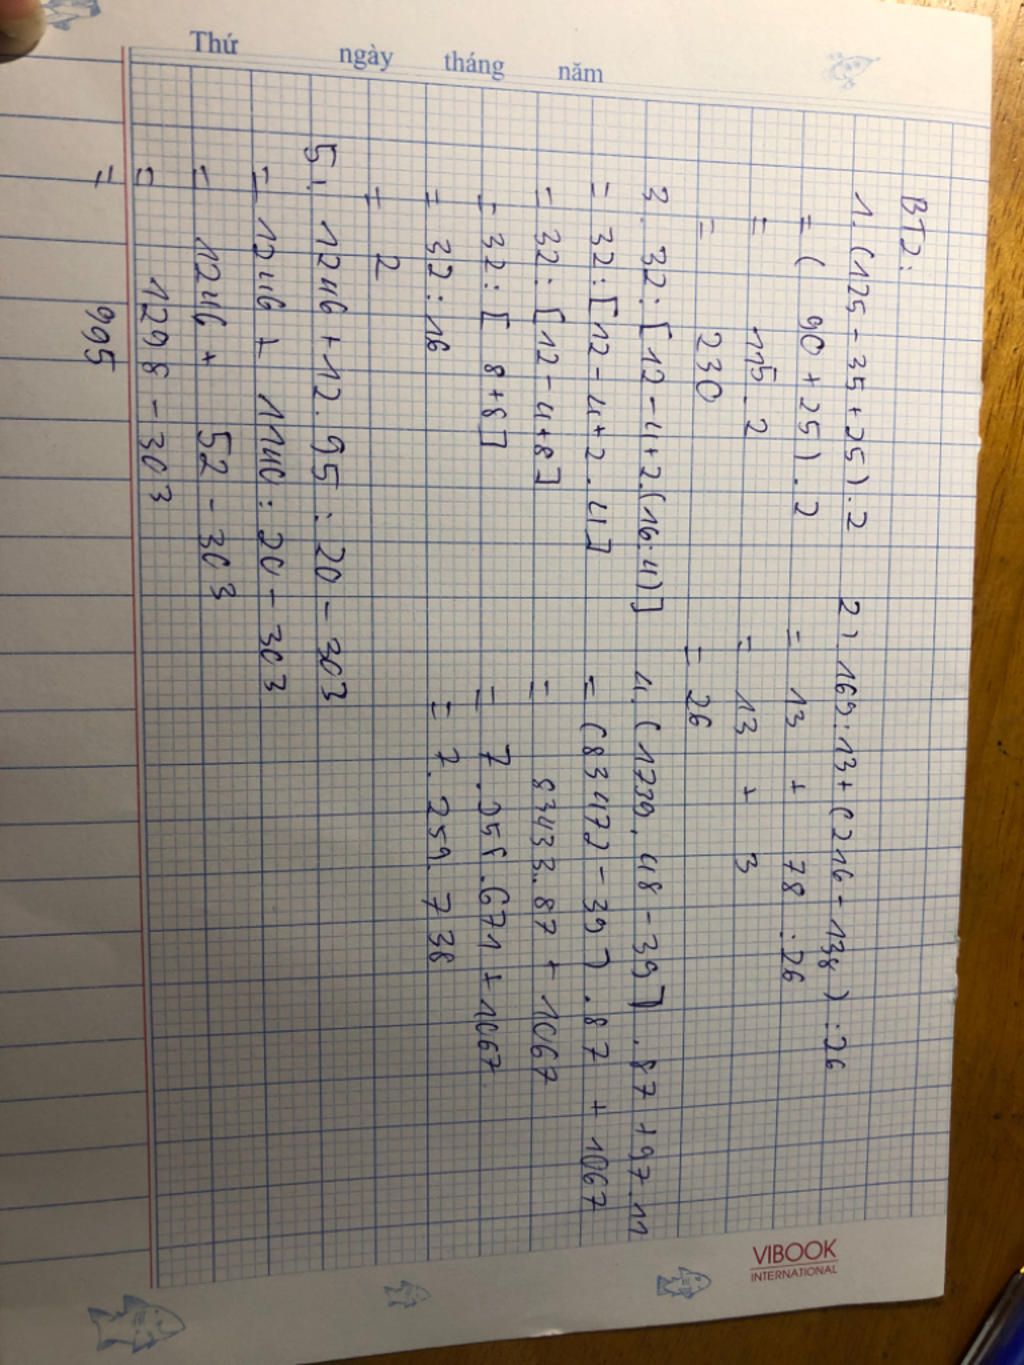 Thứ ngày tháng năm
BT2:
1. (125 - 35 + 25) . 2
= ( 90 + 25 ) . 2
= 115 . 2
= 230
2) 169 : 13 + ( 216 - 138 ) : 26
= 13 + 78 : 26
= 13 + 3
= 26
3. 32 : [ 12 - 4 + 2 . (16 : 4) ]
= 32 : [ 12 - 4 + 2 . 4 ]
= 32 : [ 12 - 4 + 8 ]
= 32 : [ 8 + 8 ]
= 32 : 16
= 2
4. ( 1739 . 48 - 39 ) . 87 + 97 . 11
= ( 83472 - 39 ) . 87 + 1067
= 83433 . 87 + 1067
= 7.258.671 + 1067
= 7.259.738
5. 1246 + 12 . 95 : 20 - 303
= 1246 + 1140 : 20 - 303
= 1246 + 52 - 303
= 1298 - 303
= 995
VIBOOK
INTERNATIONAL